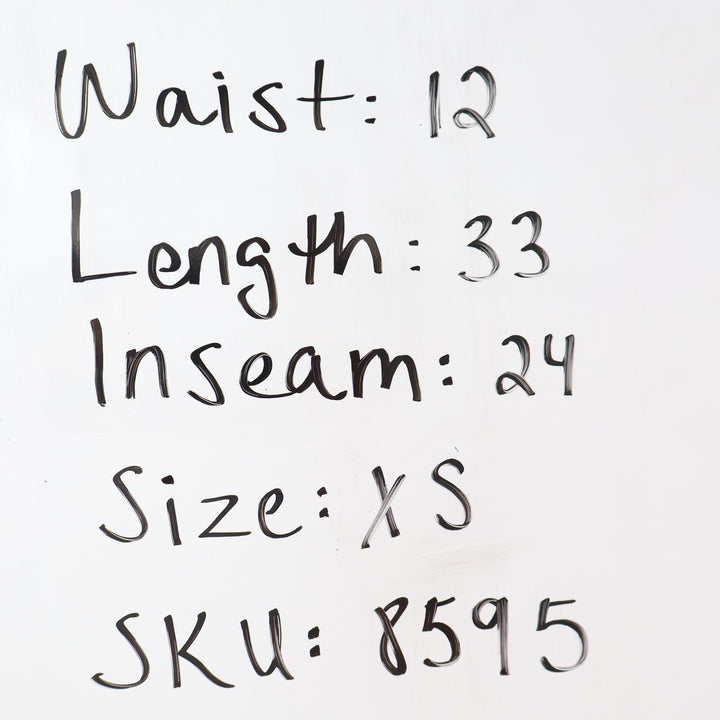 Waist: 12
Length: 33
Inseam: 24
Size: XS
SKU: 8595